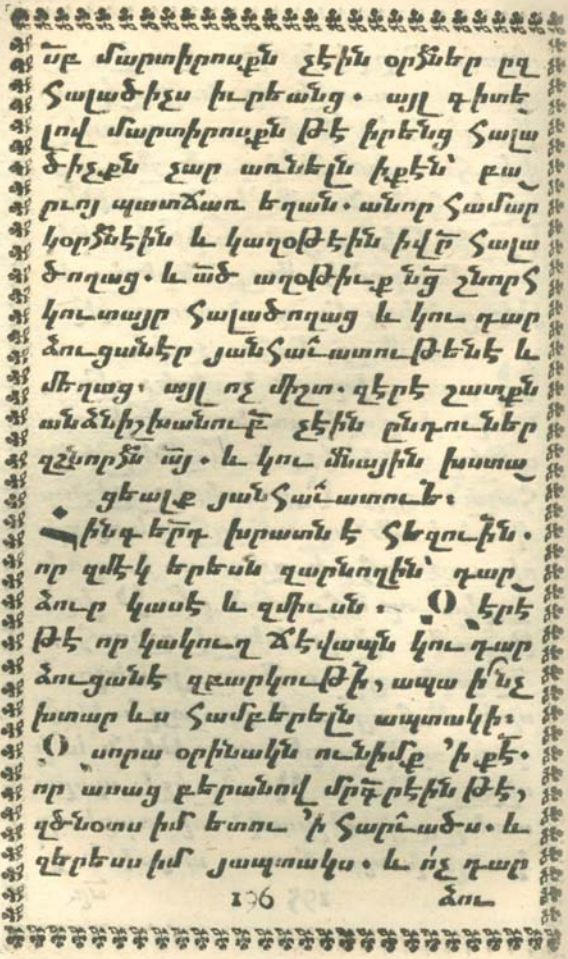 սբ մարտիրոսքն չէին օրհներ ըզ
հալածիչս իւրեանց. այլ գիտե֊
լով մարտիրոսքն թէ իրենց հալա
ծիչքն չար առնելն ի̈քէն՝ բա֊
րւոյ պատճառ եղան. անոր համար
կօրհնէին և կաղօթէին ի̈վր հալա
ծողաց. և ած աղօթիւք նց շնորհ
կուտայր հալածողաց և կու դար
ձուցանէր յանհաւատութենէ և
մեղաց. այլ ոչ միշտ. զէրէ շատքն
անձնիշխանութբ չէին ընդունէր
զշնորհն այ. և կու մնային խստա֊
ցեալք յանհաւատութե:
Հինգերդ խրատն է հեզութին.
որ զմէկ երեսն զարնողին՝ դար֊
ձուր կասէ և զմիւսն: Օ էրէ
թէ որ կակուղ ճէվապն կու դար
ձուցանէ զբարկութի, ապա ի՞նչ
խտար ևս համբերելն ապտակի:
Օ սորա օրինակն ունիմք ՚ի քէ.
որ ասաց բերանով մրգրէին թէ,
զծնօտս իմ ետու ՚ի հարւածս. և
զերեսս իմ յապտակս. և ո՛չ դար
196 ձու